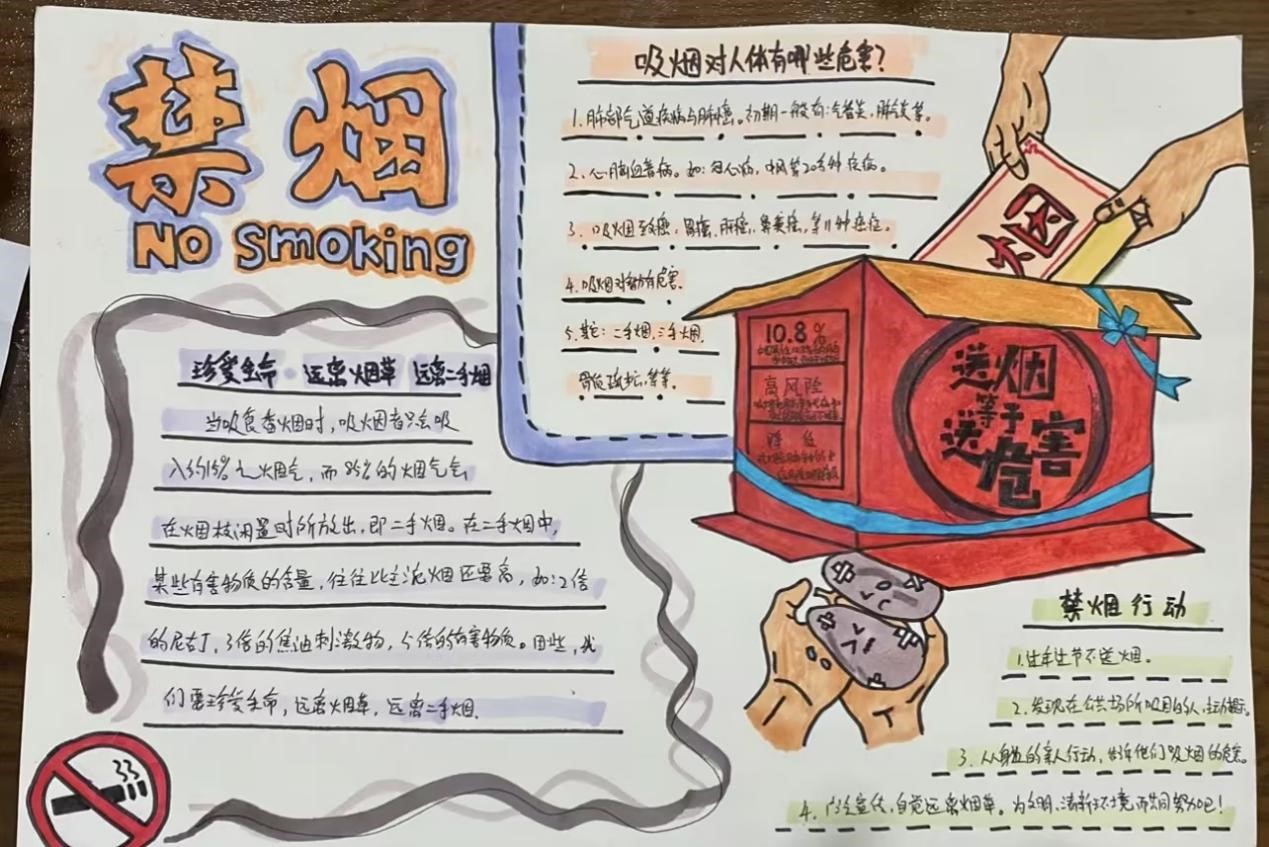 禁烟
NO Smoking
珍爱生命 远离烟草 远离二手烟
当吸食香烟时,吸烟者只会吸
入约15%之烟气,而85%的烟气会
在烟枝闲置时所放出,即二手烟。在二手烟中,
某些有害物质的含量,往往比主流烟还要高,如:2倍
的尼古丁,3倍的焦油刺激物,5倍的有害物质。因此,我
们要珍爱生命,远离烟草,远离二手烟.
吸烟对人体有哪些危害?
1.肺部气道疾病与肺癌。初期一般有:气管炎,肺炎等。
2.心脑血管病。如:冠心病,中风等20多种疾病。
3.吸烟致癌,胃癌,肝癌,鼻类癌,等11种癌症。
4.吸烟对有危害.
5.其它:二手烟,三手烟,
等等。
烟
10.8%
高风险
送烟
等于
送危害
禁烟行动
1.过年过节不送烟。
2.发现在公共场所吸烟的人,主动提示。
3.从身边的亲人行动,告诉他们吸烟的危害。
4.宣传,自觉远离烟草。为文明,清新环境而共同努力吧!